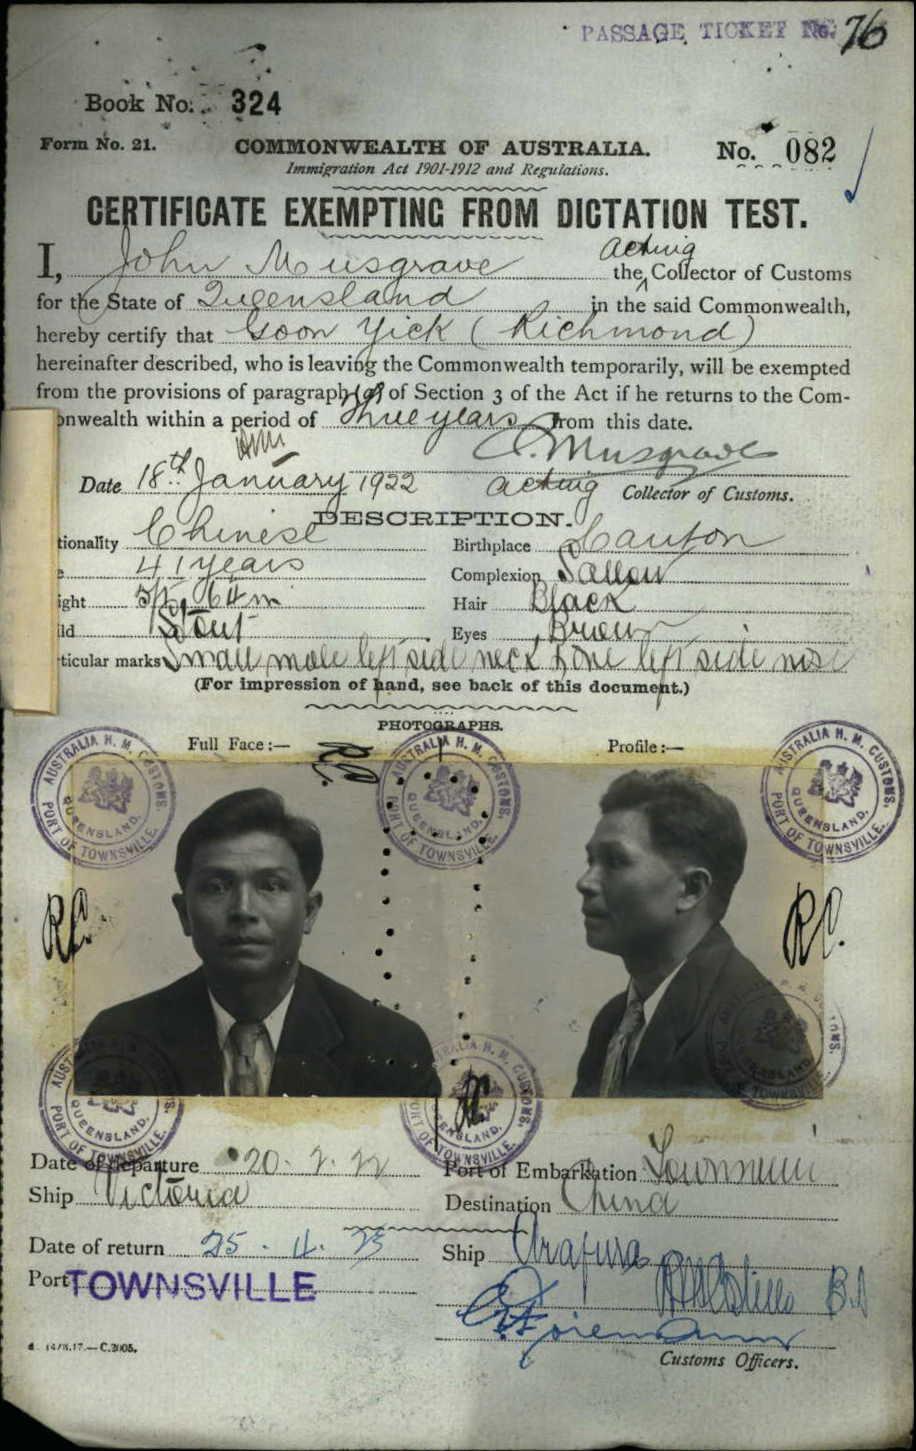 PASSAGE TICKET No. 76
Book No. 324
Form No. 21. COMMONWEALTH OF AUSTRALIA. No. 082
Immigration Act 1901-1912 and Regulations.
CERTIFICATE EXEMPTING FROM DICTATION TEST.
acting
I, John Musgrave the Collector of Customs
for the State of Queensland in the said Commonwealth,
hereby certify that Goon Yick (Richmond)
hereinafter described, who is leaving the Commonwealth temporarily, will be exempted
from the provisions of paragraph (a) of Section 3 of the Act if he returns to the Com-
onwealth within a period of three years from this date.
Musgrave
Date 18th January 1922 acting Collector of Customs.
DESCRIPTION.
tionality Chinese Birthplace Canton
41 years Complexion Sallow
ight 5ft Hair Black
ild Stout Eyes Brown
rticular marks Small mole left side neck & one left side nose
(For impression of hand, see back of this document.)
PHOTOGRAPHS.
Full Face:— Profile:—
R.C.
AUSTRALIA H. M. CUSTOMS. QUEENSLAND. PORT OF TOWNSVILLE.
AUSTRALIA H. M. CUSTOMS. QUEENSLAND. PORT OF TOWNSVILLE.
AUSTRALIA H. M. CUSTOMS. QUEENSLAND. PORT OF TOWNSVILLE.
R.C. R.C.
AUSTRALIA H. M. CUSTOMS. QUEENSLAND. PORT OF TOWNSVILLE.
AUSTRALIA H. M. CUSTOMS. QUEENSLAND. PORT OF TOWNSVILLE.
AUSTRALIA H. M. CUSTOMS. QUEENSLAND. PORT OF TOWNSVILLE.
RC
Date of departure 20. 2. 22 Port of Embarkation Townsville
Ship Victoria Destination China
Date of return 25. 4. 23 Ship Arafura
Port TOWNSVILLE
Customs Officers.
C.2005.